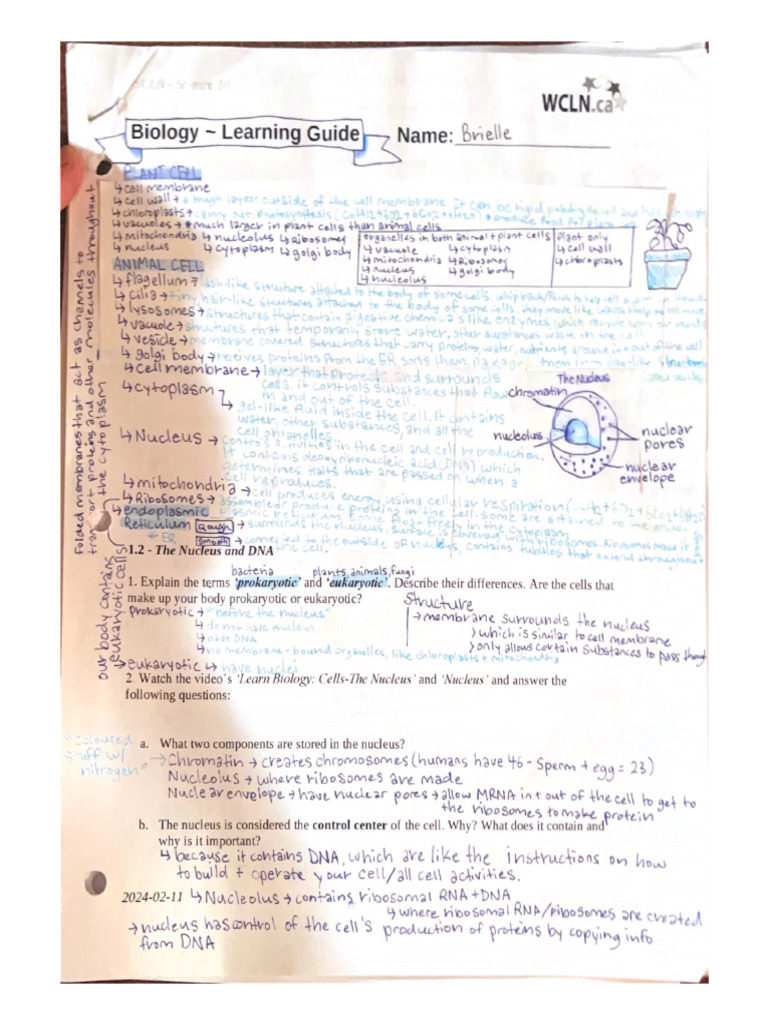 WCLN.ca
Biology ~ Learning Guide Name: Brielle
PLANT CELL
↳ cell membrane
↳ cell wall → a tough layer outside of the cell membrane. It can be rigid,
↳ chloroplasts → carry out photosynthesis
↳ vacuoles → * much larger in plant cells than animal cells
↳ mitochondria ↳ nucleolus ↳ ribosomes
↳ nucleus ↳ cytoplasm ↳ golgi body
organelles in both animal + plant cells
↳ vacuole ↳ cytoplasm
↳ mitochondria ↳ Ribosomes
↳ nucleus ↳ golgi body
↳ nucleolus
plant only
↳ cell wall
↳ chloroplasts
ANIMAL CELL
↳ flagellum → lash-like structure attached to the body of some cells, whip back/forth to help cell
↳ cilia → tiny hair-like structures attached to the body of some cells, they move like waves
↳ lysosomes → structures that contain digestive chemicals like enzymes which
↳ vacuole → structures that temporarily store water, other substances waste in the cell
↳ vesicle → membrane covered structures that carry proteins, water, nutrients around in + out of the cell
↳ golgi body → receives proteins from the ER, sorts them,
↳ cell membrane → layer that protects and surrounds
cells. it controls substances that flow
in and out of the cell
↳ cytoplasm
↳ gel-like fluid inside the cell. It contains
water, other substances, and all the
cell organelles
↳ Nucleus → controls activities in the cell and cell reproduction.
It contains deoxyribonucleic acid (DNA) which
determines traits that are passed on when a
cell reproduces.
The Nucleus
chromatin
nucleolus
nuclear
pores
nuclear
envelope
↳ mitochondria → cell produces energy using cellular respiration
↳ Ribosomes → assemble or produce proteins in the cell. some are attached to the
↳ endoplasmic
Reticulum
ER
Rough → surrounds the nucleus. surface is covered with ribosomes. Ribosomes make it
Smooth → connected to the outside of nucleus, contains tubules that extend throughout
the cell.
Folded membranes that act as channels to
transport proteins and other molecules throughout
the cytoplasm
1.2 - The Nucleus and DNA
bacteria plants, animals, fungi
1. Explain the terms 'prokaryotic' and 'eukaryotic'. Describe their differences. Are the cells that
make up your body prokaryotic or eukaryotic?
our body contains
eukaryotic cells
prokaryotic → "before the nucleus"
↳ do not have nucleus
↳ have DNA
↳ no membrane-bound organelles, like chloroplasts + mitochondria
→ eukaryotic ↳ have nuclei
Structure
→ membrane surrounds the nucleus
> which is similar to cell membrane
> only allows certain substances to pass though
2. Watch the video's 'Learn Biology: Cells-The Nucleus' and 'Nucleus' and answer the
following questions:
a. What two components are stored in the nucleus?
"coloured
stuff w/
nitrogen"
→ Chromatin → creates chromosomes (humans have 46 - sperm + egg = 23)
Nucleolus → where ribosomes are made
Nuclear envelope → have nuclear pores → allow MRNA in + out of the cell to get to
the ribosomes to make protein
b. The nucleus is considered the control center of the cell. Why? What does it contain and
why is it important?
↳ because it contains DNA, which are like the instructions on how
to build + operate your cell/all cell activities.
2024-02-11 ↳ Nucleolus → contains ribosomal RNA + DNA
↳ where ribosomal RNA/ribosomes are created
→ nucleus has control of the cell's production of proteins by copying info
from DNA